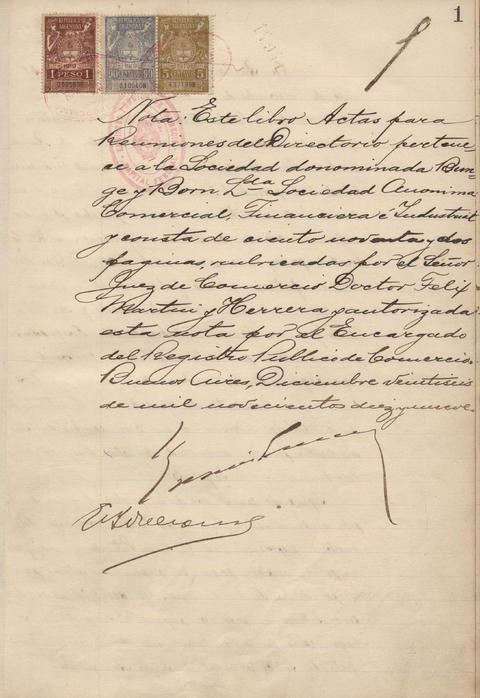 1
REPUBLICA ARGENTINA
1 PESO 1
90
5
Nota: Este libro Actas para
Reuniones del Directorio pertene
ce a la Sociedad denominada Bun=
ge y Born Lda Sociedad Anonima
Comercial, Financiera é Industrial
y consta de ciento noventa y dos
paginas, rubricadas por el Señor
Juez de Comercio Doctor Felix
Martin y Herrera y autorizada
esta nota por el Encargado
del Registro Publico de Comercio.
Buenos Aires, Diciembre veintiseis
de mil novecientos diez y nueve.